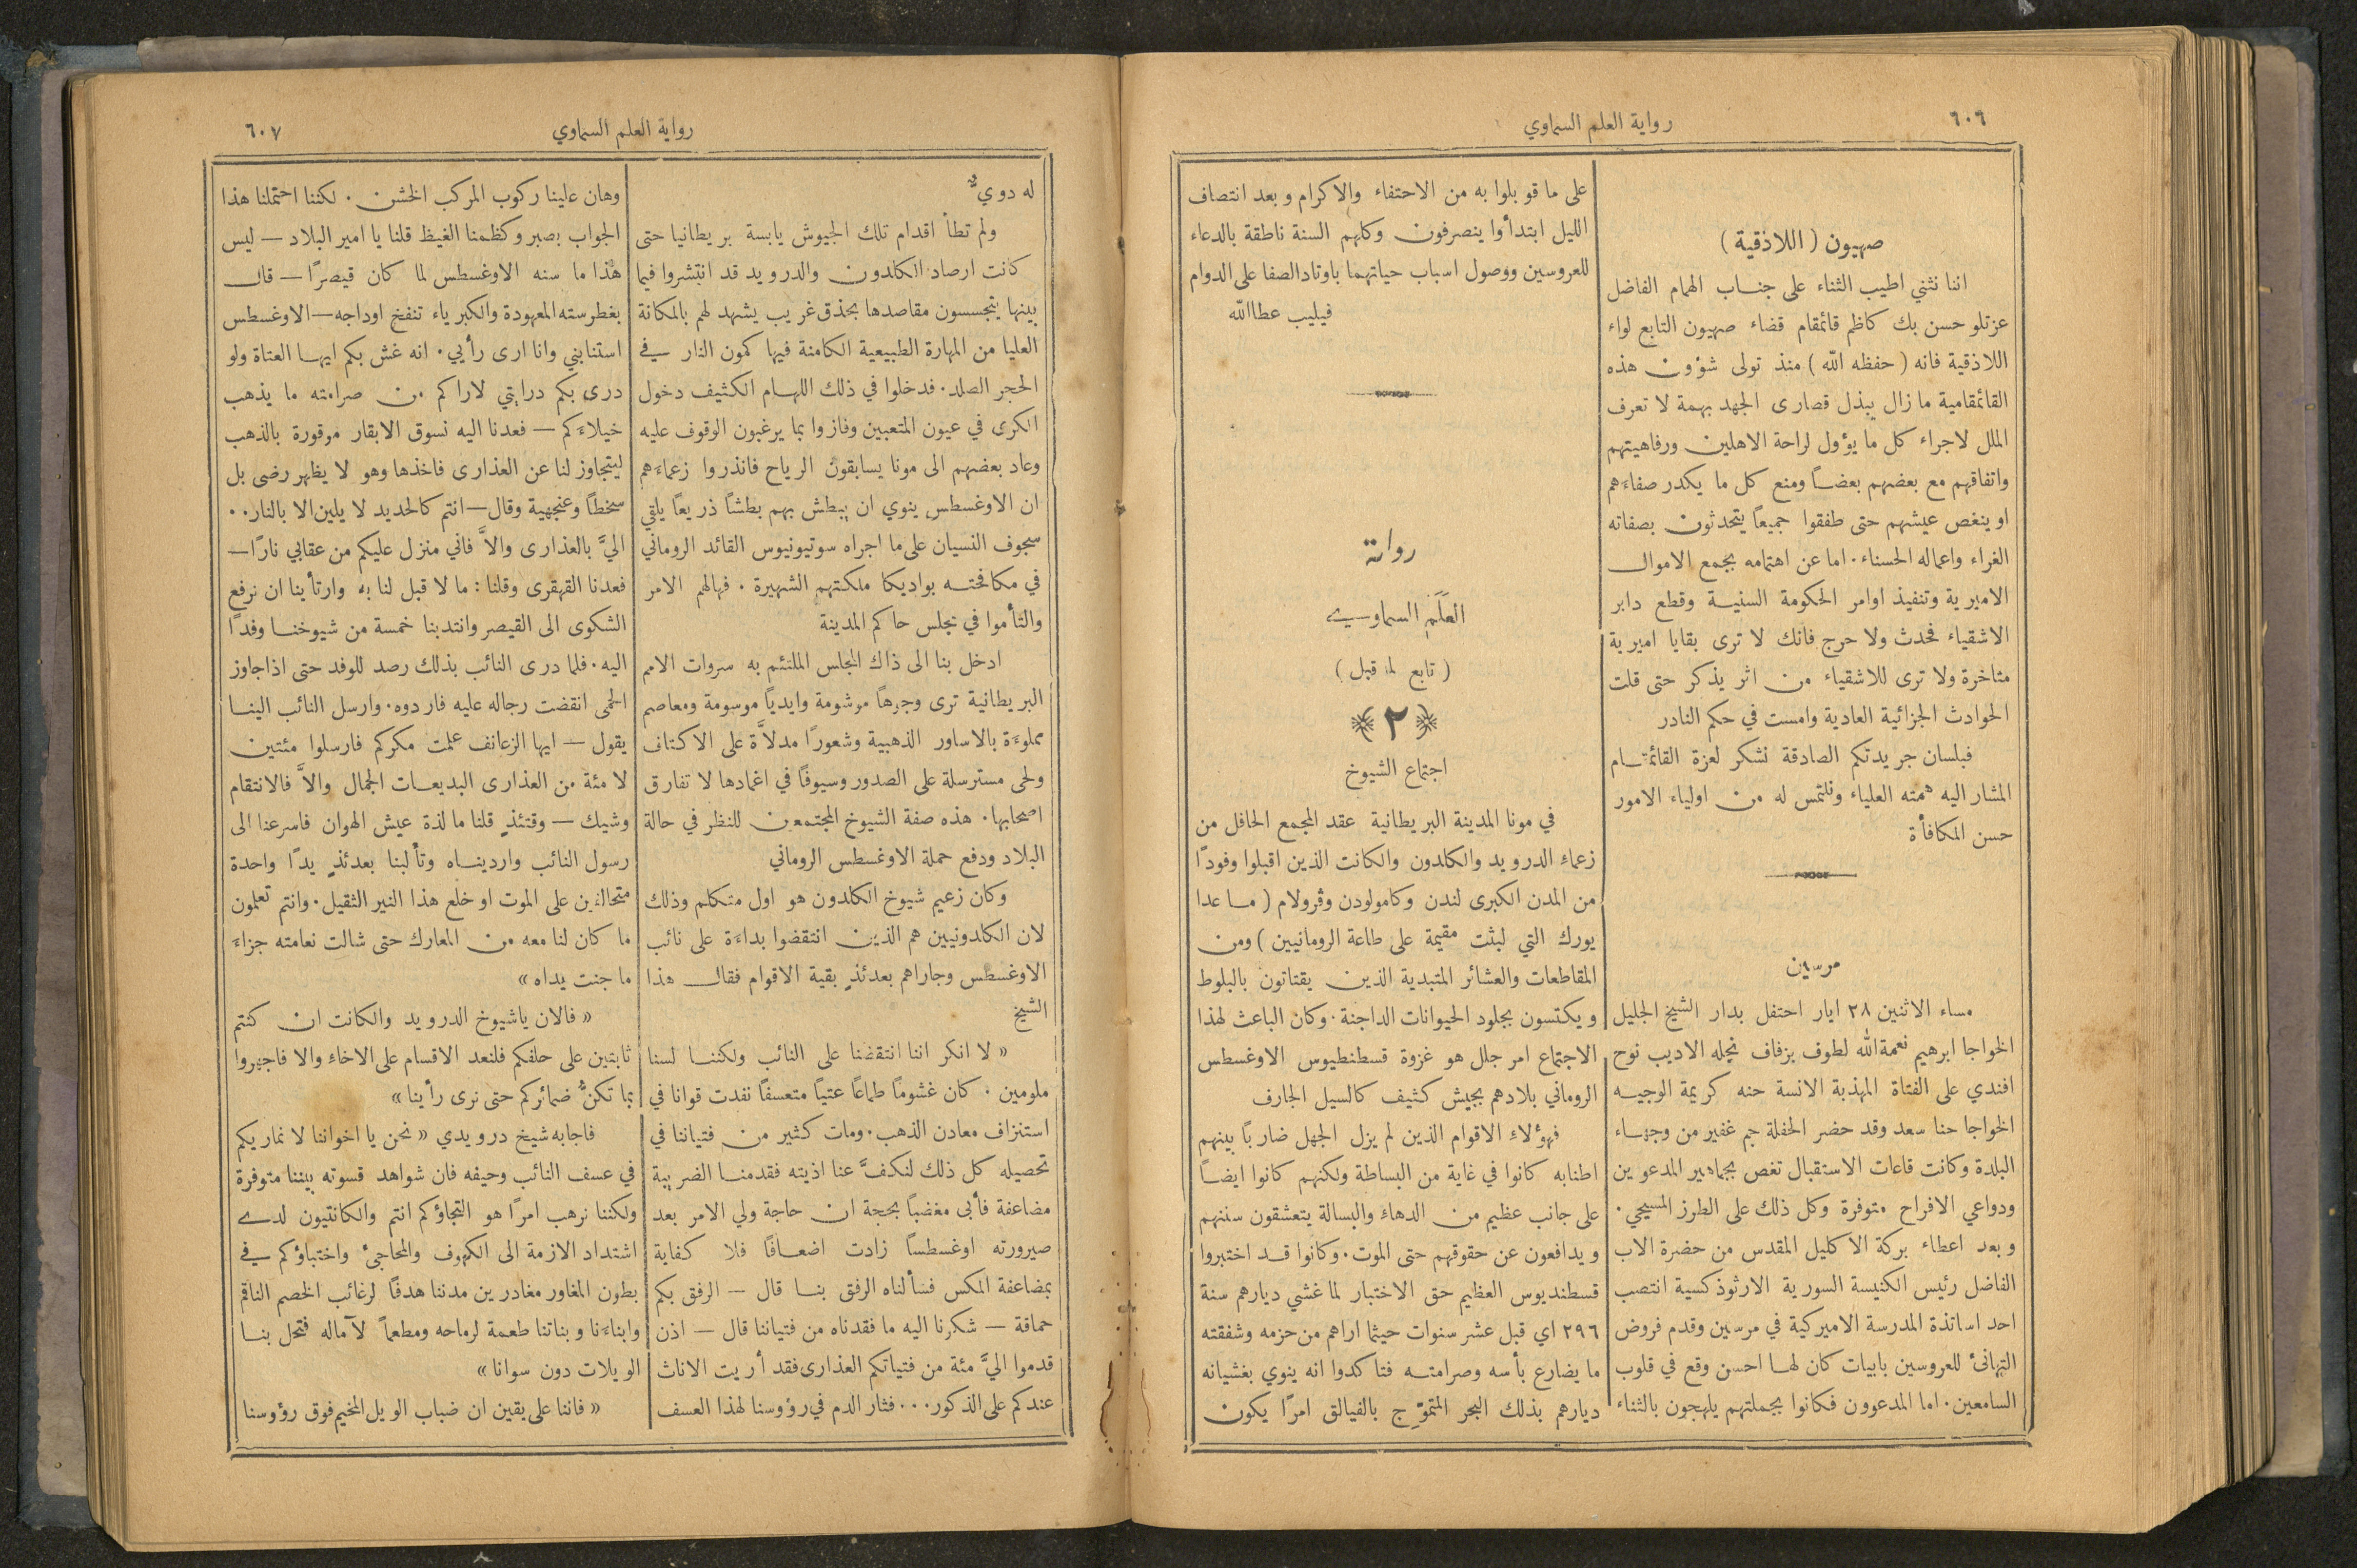 ٦٠٦
رواية العلم السماوي
صهيون ( اللاذقية )
اننا نثني اطيب الثناء على جناب الهمام الفاضل
عزتلو حسن بك كاظم قائمقام قضاء صهيون التابع لواء
اللاذقية فانه ( حفظه الله ) منذ تولى شؤون هذه
القائمقامية ما زال يبذل قصارى الجهد بهمة لا تعرف
الملل لاجراء كل ما يؤول لراحة الاهلين ورفاهيتهم
واتفاقهم مع بعضهم بعضاً ومنع كل ما يكدر صفاءهم
او ينغص عيشهم حتى طفقوا جميعاً يتحدثون بصفاته
الغراء واعماله الحسناء. اما عن اهتمامه بجمع الاموال
الاميرية وتنفيذ اوامر الحكومة السنية وقطع دابر
الاشقياء فحدث ولا حرج فانك لا ترى بقايا اميرية
متاخرة ولا ترى للاشقياء من اثر يذكر حتى قلت
الحوادث الجزائية العادية وامست في حكم النادر
فبلسان جريدتكم الصادقة نشكر لعزة القائمقام
المشار اليه همته العلياء ونلتمس له من اولياء الامور
حسن المكافأة
مرسين
مساء الاثنين ٢٨ ايار احتفل بدار الشيخ الجليل
الخواجا ابرهيم نعمةالله لطوف بزفاف نجله الاديب نوح
افندي على الفتاة المهذبة الانسة حنه كريمة الوجيه
الخواجا حنا سعد وقد حضر الحفلة جم غفير من وجهاء
البلدة وكانت قاعات الاستقبال تغص بجماهير المدعوين
ودواعي الافراح متوفرة وكل ذلك على الطرز المسيحي.
وبعد اعطاء بركة الاكليل المقدس من حضرة الاب
الفاضل رئيس الكنيسة السورية الارثوذكسية انتصب
احد اساتذة المدرسة الاميركية في مرسين وقدم فروض
التهانئ للعروسين بابيات كان لها احسن وقع في قلوب
السامعين. اما المدعوون فكانوا بجملتهم يلهجون بالثناء
على ما قوبلوا به من الاحتفاء والاكرام وبعد انتصاف
الليل ابتدأوا ينصرفون وكلهم السنة ناطقة بالدعاء
للعروسين ووصول اسباب حياتهما باوتاد الصفا على الدوام
فيليب عطاالله
رواية
العَلَم السماوي
( تابع لما قبل )
﴿ ٢ ﴾
اجتماع الشيوخ
في مونا المدينة البريطانية عقد المجمع الحافل من
زعماء الدرويد والكلدون والكانت الذين اقبلوا وفودًا
من المدن الكبرى لندن وكامولودن وڤرولام ( ما عدا
يورك التي لبثت مقيمة على طاعة الرومانيين ) ومن
المقاطعات والعشائر المتبدية الذين يقتاتون بالبلوط
ويكتسون بجلود الحيوانات الداجنة. وكان الباعث لهذا
الاجتماع امر جلل هو غزوة قسطنطيوس الاوغسطس
الروماني بلادهم بجيش كثيف كالسيل الجارف
فهؤلاء الاقوام الذين لم يزل الجهل ضاربًا بينهم
اطنابه كانوا في غاية من البساطة ولكنهم كانوا ايضاً
على جانب عظيم من الدهاء والبسالة يتعشقون سننهم
ويدافعون عن حقوقهم حتى الموت. وكانوا قد اختبروا
قسطنديوس العظيم حق الاختبار لما غشي ديارهم سنة
٢٩٦ اي قبل عشر سنوات حيثما اراهم من حزمه وشفقته
ما يضارع بأسه وصرامته فتاكدوا انه ينوي بغشيانه
ديارهم بذلك البحر المتموّج بالفيالق امرًا يكون
رواية العلم السماوي
٦٠٧
له دويٌّ
ولم تطأ اقدام تلك الجيوش يابسة بريطانيا حتى
كانت ارصاد الكلدون والدرويد قد انتشروا فيما
بينها يتجسسون مقاصدها بحذق غريب يشهد لهم بالمكانة
العليا من المهارة الطبيعية الكامنة فيها كمون النار في
الحجر الصلد. فدخلوا في ذلك اللهام الكثيف دخول
الكرى في عيون المتعبين وفازوا بما يرغبون الوقوف عليه
وعاد بعضهم الى مونا يسابقون الرياح فانذروا زعماءهم
ان الاوغسطس ينوي ان يبطش بهم بطشاً ذريعاً يلقي
سجوف النسيان على ما اجراه سوتيونيوس القائد الروماني
في مكافحته بواديكا ملكتهم الشهيرة . فهالهم الامر
والتأموا في مجلس حاكم المدينة
ادخل بنا الى ذاك المجلس الملتئم به سروات الامم
البريطانية ترى وجوهاً موشومة وايدياً موسومة ومعاصم
مملوءة بالاساور الذهبية وشعورًا مدلاَّة على الاكتاف
ولحى مسترسلة على الصدور وسيوفًا في اغمادها لا تفارق
اصحابها. هذه صفة الشيوخ المجتمعين للنظر في حالة
البلاد ودفع حملة الاوغسطس الروماني
وكان زعيم شيوخ الكلدون هو اول متكلم وذلك
لان الكلدونيين هم الذين انتقضوا بداءة على نائب
الاوغسطس وجاراهم بعدئذٍ بقية الاقوام فقال هذا
الشيخ
« لا انكر اننا انتقضنا على النائب ولكننا لسنا
ملومين . كان غشومًا طماعًا عتيًا متعسفًا نفدت قوانا في
استنزاف معادن الذهب. ومات كثير من فتياننا في
تحصيله كل ذلك لنكفَّ عنا اذيته فقدمنا الضريبة
مضاعفة فأبى مغضبًا بحجة ان حاجة ولي الامر بعد
صيرورته اوغسطساً زادت اضعافًا فلا كفاية
بمضاعفة المكس فسألناه الرفق بنا قال — الرفق بكم
حماقة — شكونا اليه ما فقدناه من فتياننا قال — اذن
قدموا اليَّ مئة من فتياتكم العذارى فقد أربت الاناث
عندكم على الذكور... فثار الدم في رؤوسنا لهذا العسف
وهان علينا ركوب المركب الخشن . لكننا احتملنا هذا
الجواب بصبر وكظمنا الغيظ قلنا يا امير البلاد — ليس
هذا ما سنه الاوغسطس لما كان قيصرًا — قال
بغطرسته المعهودة والكبرياء تنفخ اوداجه — الاوغسطس
استنابني وانا ارى رأيي. انه غش بكم ايها العتاة ولو
درى بكم درايتي لاراكم من صرامته ما يذهب
خيلاءكم — فعدنا اليه نسوق الابقار موقورة بالذهب
ليتجاوز لنا عن العذارى فاخذها وهو لا يظهر رضى بل
سخطًا وعنجهية وقال — انتم كالحديد لا يلين الا بالنار..
اليَّ بالعذارى والاَّ فاني منزل عليكم من عقابي نارًا —
فعدنا القهقرى وقلنا : ما لا قبل لنا به وارتأينا ان نرفع
الشكوى الى القيصر وانتدبنا خمسة من شيوخنا وفدًا
اليه. فلما درى النائب بذلك رصد للوفد حتى اذا جاوز
الحمى انقضت رجاله عليه فاردوه. وارسل النائب الينا
يقول — ايها الزعانف علمت مكركم فارسلوا مئتين
لا مئة من العذارى البديعات الجمال والاَّ فالانتقام
وشيك — وقتئذٍ قلنا ما لذة عيش الهوان فاسرعنا الى
رسول النائب وارديناه وتألبنا بعدئذٍ يدًا واحدة
متحالفين على الموت او خلع هذا النير الثقيل. وانتم تعلمون
ما كان لنا معه من المعارك حتى شالت نعامته جزاء
ما جنت يداه »
« فالان ياشيوخ الدرويد والكانت ان كنتم
ثابتين على حلفكم فلنعد الاقسام على الاخاء والا فاجهروا
بما تكنُّ ضمائركم حتى نرى رأينا »
فاجابه شيخ درويدي « نحن يا اخواننا لا نماريكم
في عسف النائب وحيفه فان شواهد قسوته بيننا متوفرة
ولكننا نرهب امرًا هو التجاؤكم انتم والكانتيون لدى
اشتداد الازمة الى الكهوف والمحاجئ واختباؤكم في
بطون المغاور مغادرين مدننا هدفًا لرغائب الخصم الناقم
وابناءنا وبناتنا طعمة لرماحه ومطعمًا لآماله فتحل بنا
الويلات دون سوانا »
« فاننا على يقين ان ضباب الويل المخيم فوق رؤوسنا